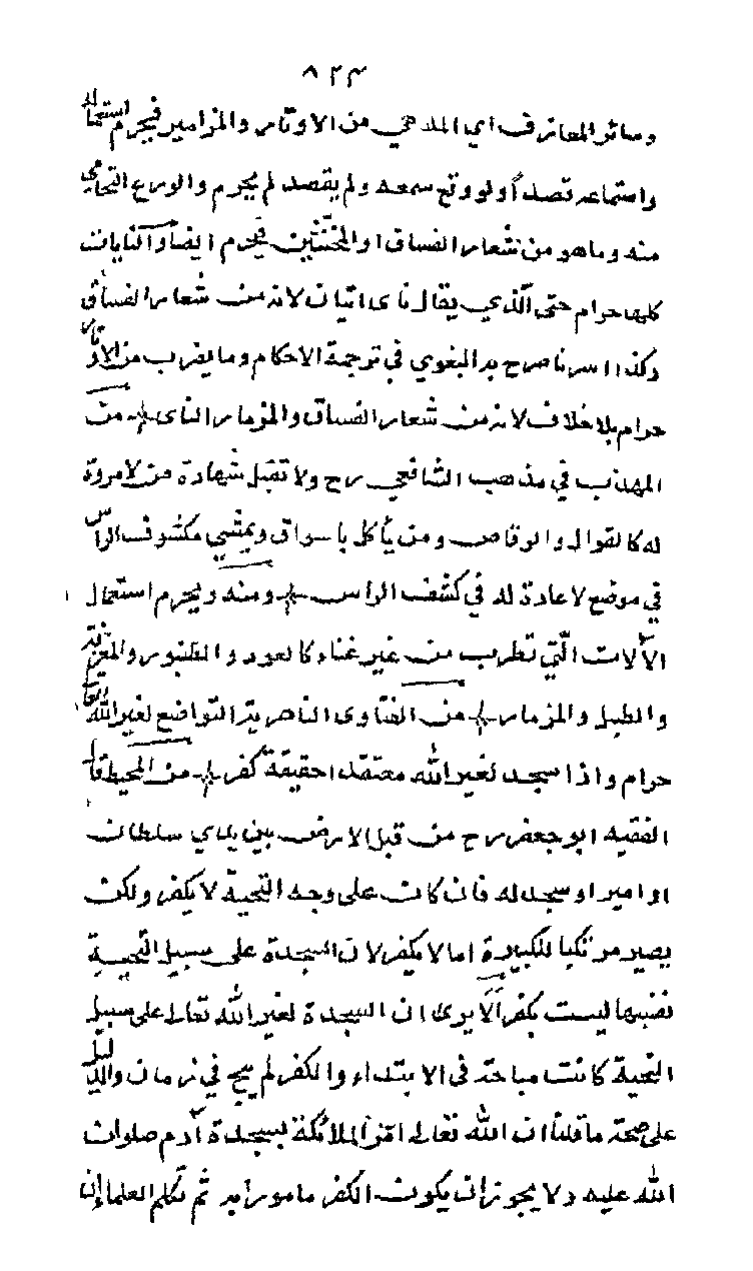 ٨٢٣
وسائر المعازف اي الملاهي من الاوتار والمزامير فيحرم استعماله
واستماعه قصداً ولو وقع سمعه ولم يقصد لم يحرم والورع التحامي
منه وما هو من شعار الفساق او المخنثين فيحرم ايضا والنايات
كلها حرام حتى الذي يقال ناى انبان لانه من شعار الفساق
وكذا ا صرح به البغوي في ترجمة الاحكام وما يضرب من الاوتار
حرام بلا خلاف لانه من شعار الفساق والمزمار الناى من
المهذب في مذهب الشافعي رح ولا تقبل شهادة من لا مروة
له كالقوال والرقاص ومن يأكل باسواق ويمشي مكشوف الراس
في موضع لا عادة له في كشف الراس ومنه ويحرم استعمال
الآلات التي تطرب من غير غناء كالعود والطنبور والمعزفة
والطبل والمزمار من الفتاوى الناصرية التواضع لغير الله
حرام واذا سجد لغير الله معتقدا حقيقة كفر من المحيط قال
الفقيه ابو جعفر رح من قبل الارض بين يدي سلطان
او امير او سجد له فان كان على وجه التحية لا يكفر ولكن
يصير مرتكبا للكبيرة اما لا يكفر لان السجدة على سبيل التحية
نفسها ليست بكفر ألا يرى ان السجدة لغير الله تعالى على سبيل
التحية كانت مباحة في الابتداء والكفر لم يبح في زمان والدليل
على صحة ما قلنا ان الله تعالى امر الملائكة بسجدة آدم صلوات
الله عليه ولا يجوز ان يكون الكفر مامورا به ثم تكلم العلما إن